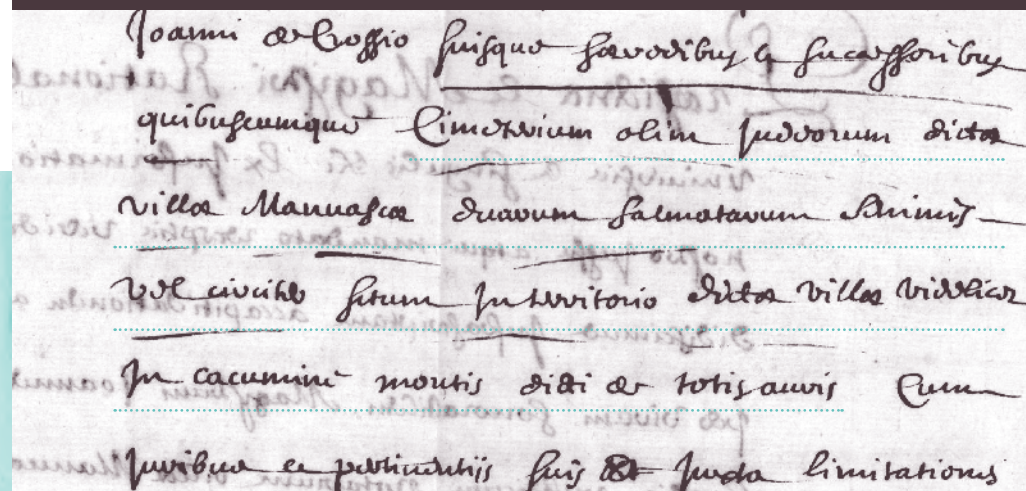 Joanni de Croffio suisque heredibus & sucessoribus
quibuscumque Cimeterium olim Judeorum dictæ
villæ Manuascæ duarum salmatarum seminis
vel circiter situm in territorio dictæ villæ videlicet
In cacumine montis dicti de totis auris Cum
Juribus et pertinentiis suis et juxta limitationes